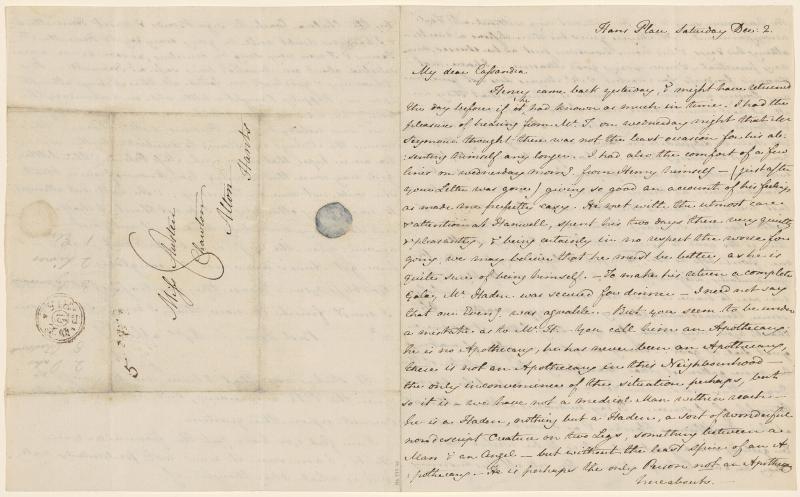 Hans Place, Saturday Dec: 2.
My dear Cassandra
Henry came back yesterday, & might have returned
the day before if he had known as much in time. I had the
pleasure of hearing from Mr. T. on wednesday night that Mr
Seymour thought there was not the least occasion for his ab:
:senting himself any longer. I had also the comfort of a few
lines on wednesday morng from Henry himself — (just after
your Letter was gone) giving so good an account of his feelings
as made me perfectly easy. He met with the utmost care
& attention at Hanwell, spent his two days there very quietly
& pleasantly, & being certainly in no respect the worse for
going, we may believe that he must be better, as he is
quite sure of being himself. — To make his return a complete
Gala, Mr Haden was secured for dinner — I need not say
that our Eveng was agreable. — But you seem to be under
a mistake as to Mr. H. — You call him an Apothecary;
he is no Apothecary, he has never been an Apothecary,
there is not an Apothecary in this Neighbourhood —
the only inconvenience of the situation perhaps, but
so it is — we have not a medical Man within reach —
he is a Haden, nothing but a Haden, a sort of wonderful
nondescript Creature on two Legs, something between a
Man & an Angel — but without the least spice of an A
:pothecary. — He is perhaps the only Person not an Apothecary
hereabouts. —
Miss Austen
Chawton
Alton
Hants